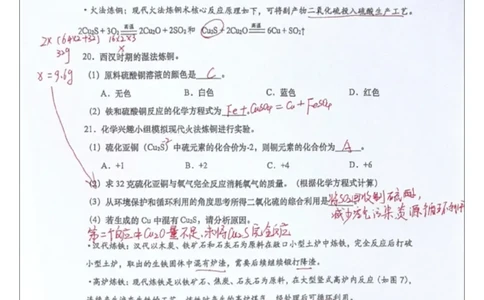 ·火法炼铜：现代火法炼铜术核心反应原理如下，可得副产物二氧化硫投入硫酸生产工艺。
2Cu₂S+3O₂ 高温 2Cu₂O+2SO₂ 和 Cu₂S+2Cu₂O 高温 6Cu+SO₂↑
2×(64×2+32) 16×2×3
32g x
x=9.6g
20．西汉时期的湿法炼铜。
（1）原料硫酸铜溶液的颜色是 C 。
A．无色 B．白色 C．蓝色 D．红色
（2）铁和硫酸铜反应的化学方程式为 Fe+CuSO₄=Cu+FeSO₄
21．化学兴趣小组模拟现代火法炼铜进行实验。
（1）硫化亚铜（Cu₂S）中硫元素的化合价为-2，则铜元素的化合价为 A 。
-2
A．+1 B．+2 C．+4 D．+6
（2）求 32 克硫化亚铜与氧气完全反应消耗氧气的质量。（根据化学方程式计算）
（3）从环境保护和循环利用的角度思考所得二氧化硫的综合利用是 将SO₂回收制硫酸，
减少大气污染，资源循环利用
（4）若生成的 Cu 中混有 Cu₂S，请分析原因。
第二个反应中Cu₂O量不足，未将Cu₂S完全反应
·汉代炼铁：汉代以木炭、铁矿石和石灰石为原料在敞口小型土炉中炼铁，完全反应后打破
小型土炉，取出的生铁固体中混有炉渣，需要后续继续锻打降渣。
·高炉炼铁：现代炼铁是以铁矿石、焦炭、石灰石为原料，在大型竖式高炉内反应（如图 7），